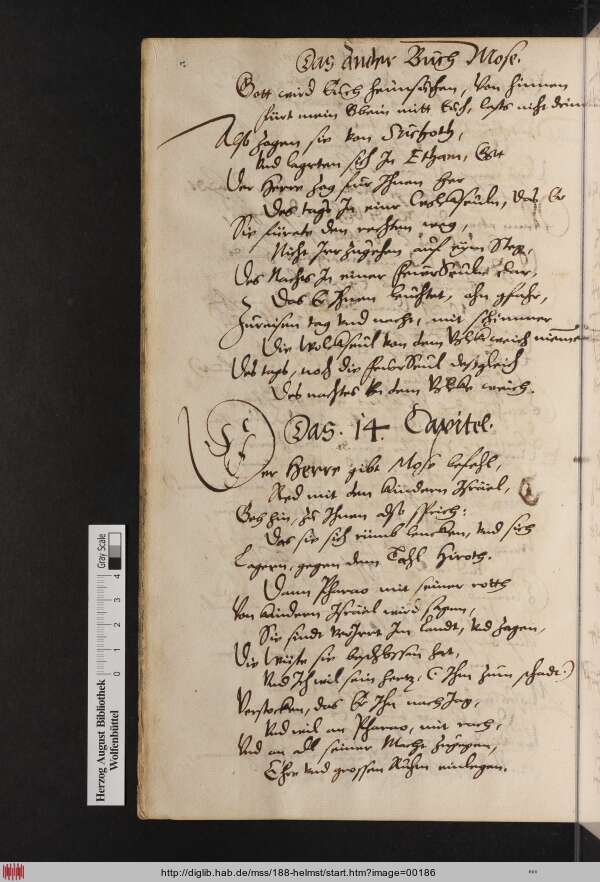 Das Ander Buch Mose.
Gott wird Euch heimsuchen, Von hinnen
fürt mein Gbein mitt Euch, lasts nicht drinnen
Also zogen sie von Suchoth,
Vnd lagrten sich In Etham, Gott
Der Herre zog für Ihnen her
Des tags In einr Wolcksäuln, das Er
Sie fürete den rechten weg,
Nicht Irr zugehen auf eim Steg,
Des Nachts In einer Feuerseuln klar,
Das Er Ihnen leuchtet, ohn gfahr,
Zureisen tag vnd nacht, mit schimmer
Die Wolckseul von dem Volck weich nimmer
Des tags, noch die Feuerseul desgleich
Des nachtes von dem Volcke weich.
Das. 14. Capitel.
Der Herre gibt Mose befehl,
Red mit den kindern Israel,
Geh hin, zu Ihnen also sprich:
Das sie sich rümb lencken, vnd sich
Lagern, gegen dem Tahl Hiroth.
Dann Pharao mit seiner rott
Von kindern Israel wird sagen,
Sie sindt verIrret Im landt, vnd zagen,
Die Wüste sie beschlossen hat,
Vnd Ich wil sein hertz, (Ihm zum schadt.)
Verstocken, das Er Ihn nach Jag,
Vnd wil an Pharao, mit rach,
Vnd an all seiner Macht
Ehre vnd grossen Ruhm einlegen.
Gray Scale
0 1 2 3 4
Herzog August Bibliothek
Wolfenbüttel
http://diglib.hab.de/mss/188-helmst/start.htm?image=00186